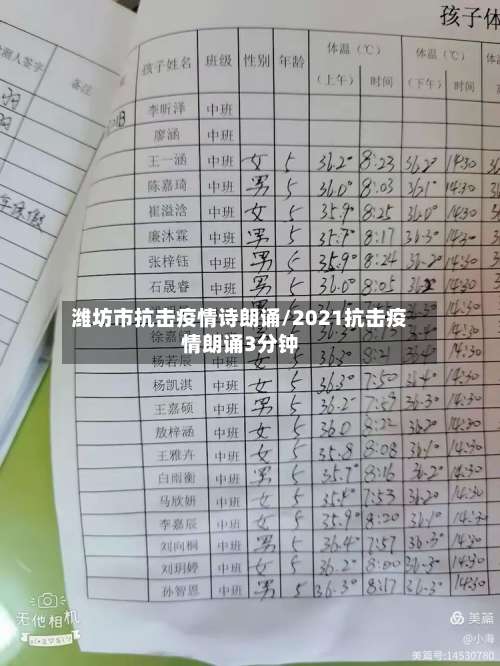 孩子体
测人签字
备注
孩子姓名 班级 性别 年龄 体温（℃） 体温（℃）
（上午） 时间 （下午） 时间
李昕泽 中班
廖涵 中班
王一涵 中班 女 5 36.2° 8:23 36.2° 14:30
陈嘉琦 中班 男 5 36.0° 8:03 36.1° 14:30
崔溢浛 中班 女 5 35.9° 8:25 36.0° 14:30
廉沐霖 中班 男 5 35.7° 8:17 36.3° 14:30
张梓钰 中班 男 5 35.9° 8:24 36.2° 14:30
石晟睿 中班 男 5 36.0° 8:05 14:30
潍坊市抗击疫情诗朗诵/2021抗击疫
情朗诵3分钟
徐嘉
杨若辰 中班 8:21 14:30
杨凯淇 中班 女 5 36.3° 7:50 36.4° 14:30
王嘉硕 中班 男 5 36.2° 7:59 36.3° 14:30
敖梓涵 中班 女 5 36.0 8:22 36.2° 14:30
王雅卉 中班 女 5 35.8 8:08 36.1° 14:30
白雨衡 中班 男 5 35.7° 8:16 36.2° 14:30
马欣妍 中班 女 5 7:53 36.2° 14:30
李嘉辰 中班 女 5 35.9° 8:20 36.1° 14:30
刘向桐 中班 男 5 36.4° 7:57 36.3° 14:30
刘玥婷 中班 女 5 36.2° 8:00 36.3° 14:30
孙智恩 中班 男 5 36.3° 8:17 36.3° 14:30
无他相机
美篇
@小海
美篇号:14530780